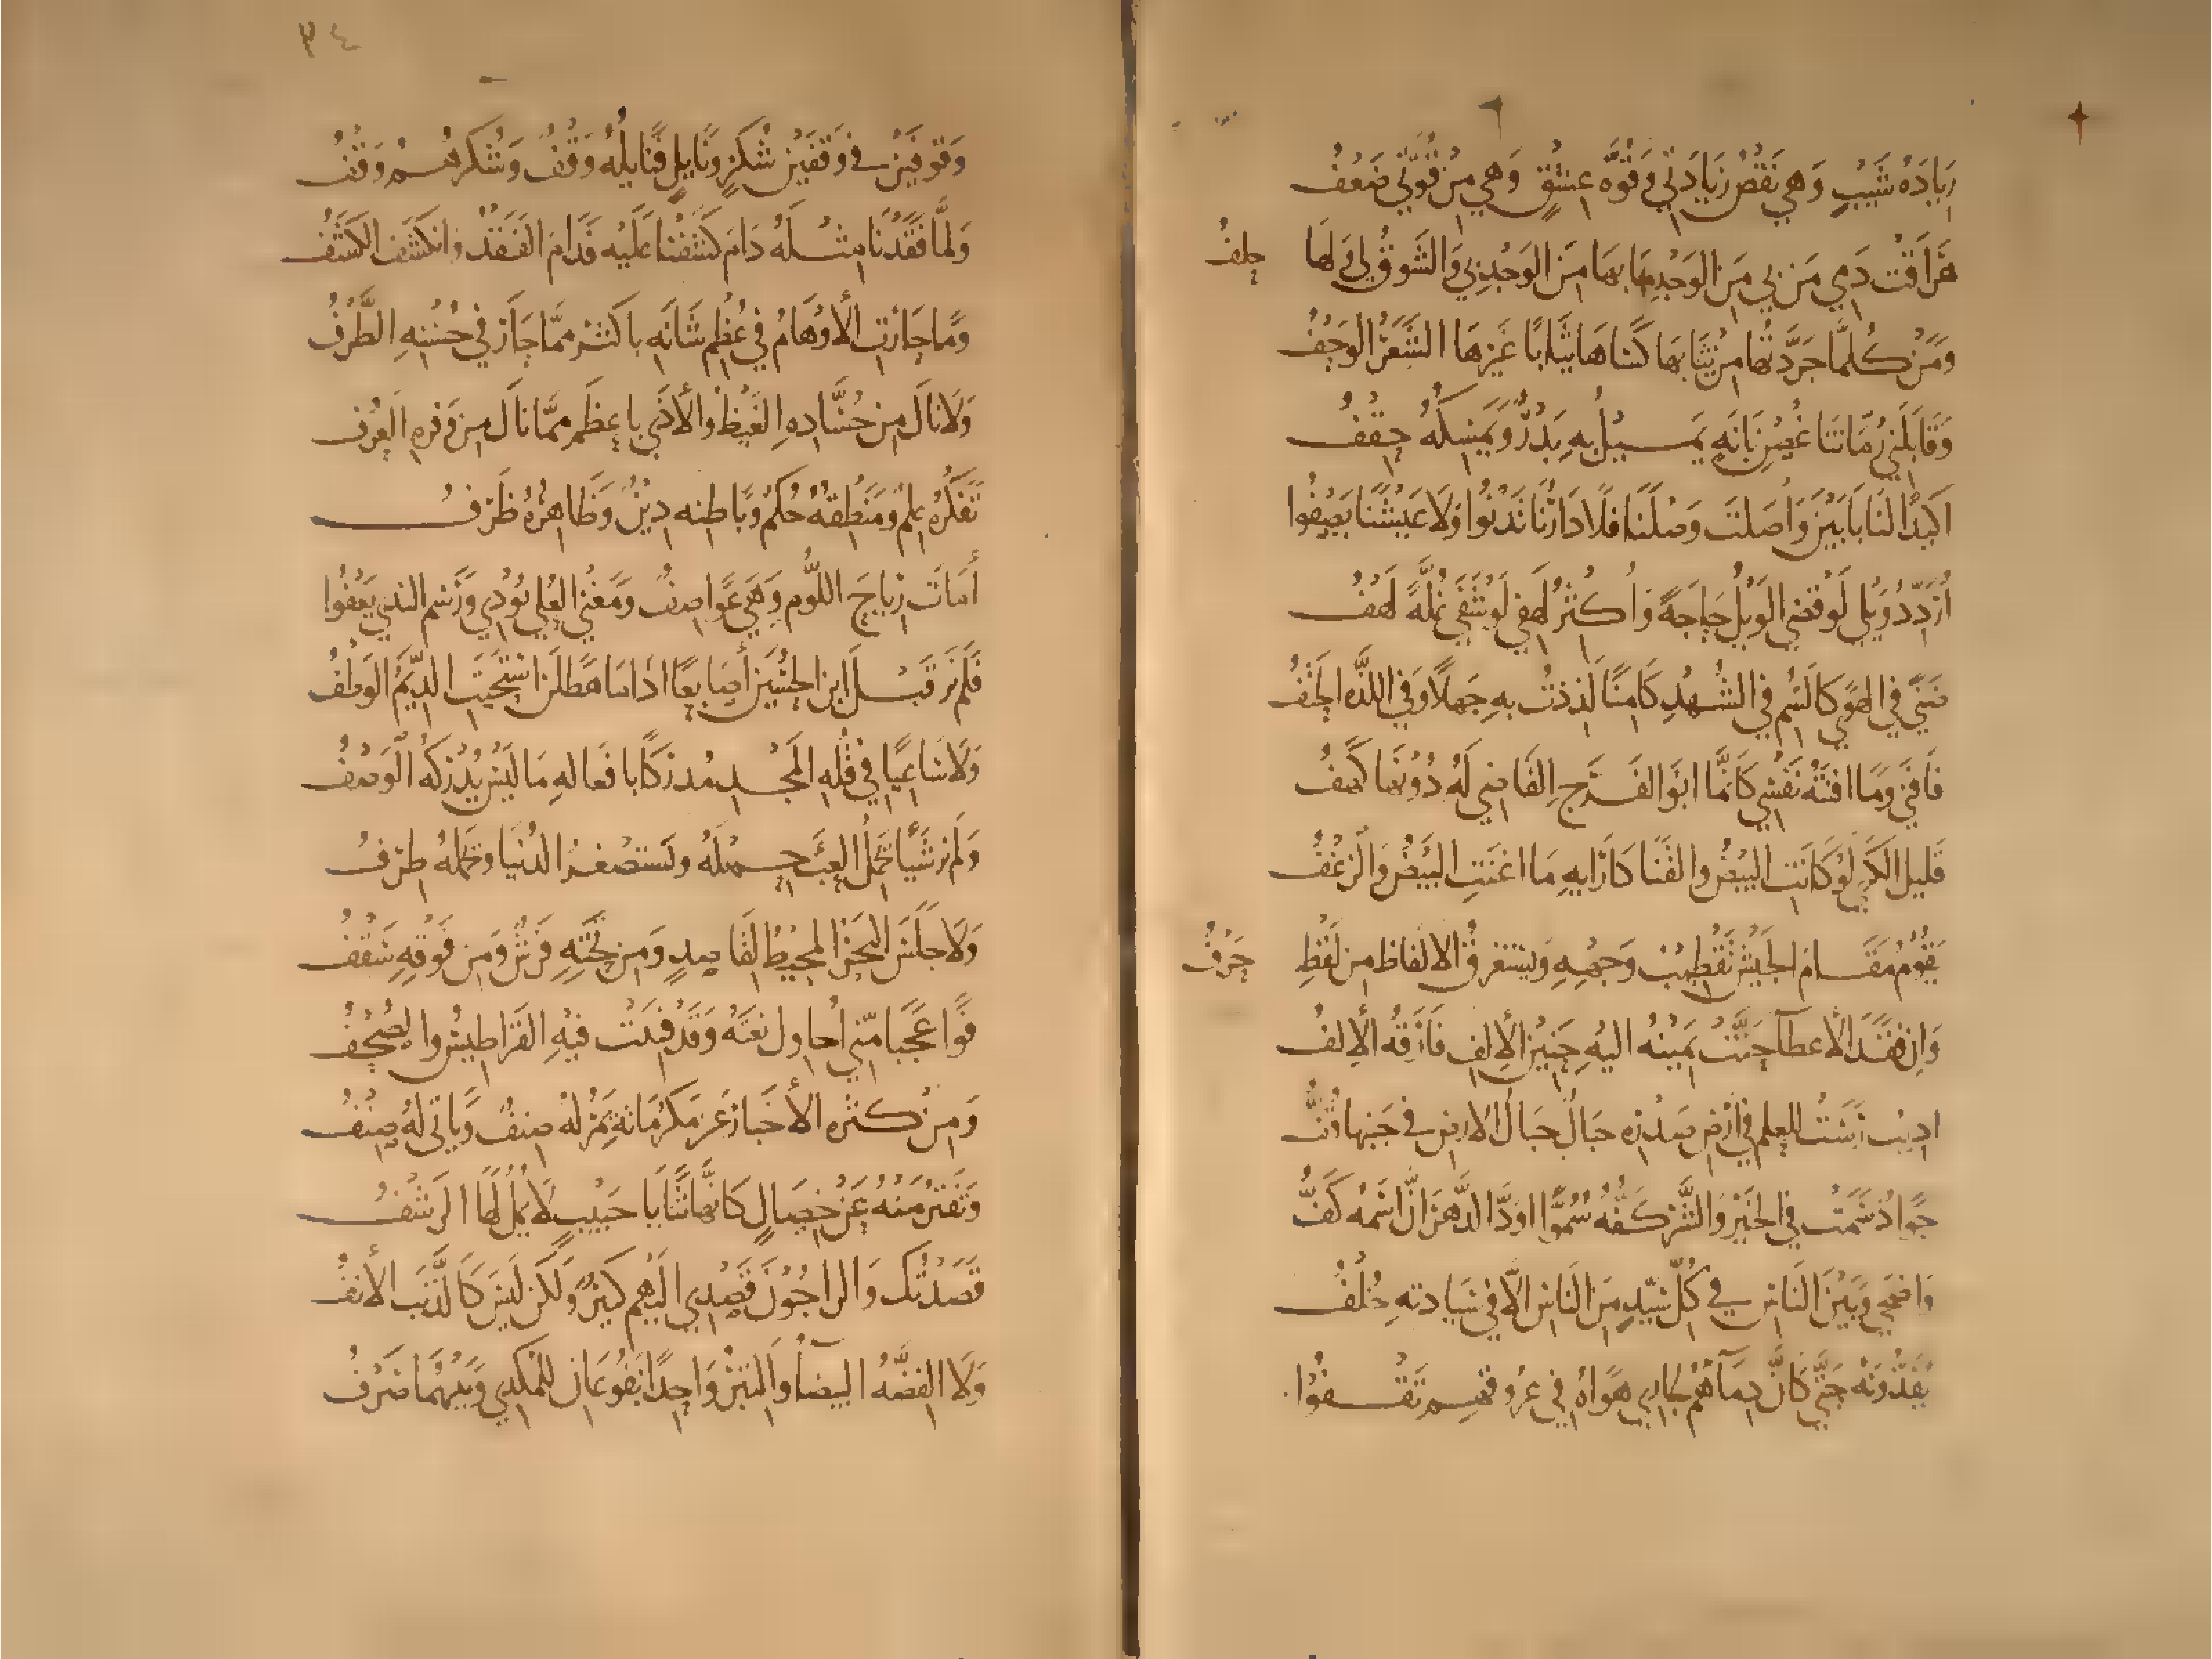 زِيَادَةُ شَيْبٍ وَهِي نَقْصُ زِيَادَتِي وَقُوَّةُ عِشْقٍ وَهِي مِنْ قُوَّتِي ضَعْفُ
هَرَاقَتْ دَمِي مَن بِي مِنَ الوَجْدِ مَا بِهَا مِنَ الوَجْدِ بِي وَالشَوقُ لِي وَلَهَا حِلفُ
وَمَنْ كُلَّمَا جَرَّدتُهَا مِنْ ثِيَابِهَا كَسَاهَا ثِيَابًا غَيْرَهَا الشَعَرُ الوَحْفُ
وَقَابَلَنِي رُمَّانَتَا غُصْنِ بَانَةٍ يَميلُ بِهِ بَدْرٌ وَيُمْسِكُهُ حِقْفُ
اكَيْدًا لَنَا يَا بَيْنُ وَاصَلتَ وَصْلَنَا فَلَا دَارُنَا تَدْنُوا وَلَا عَيْشُنَا يَصْفُوا
أُرَدِّدُ وَيْلِي لَوْ قَضَى الوَيْلُ حَاجَةً وَاُكْثِرُ لَهْفِي لَوْ شَفَى غُلَّةً لَهْفُ
ضَنًى فِي الهَوَى كَالسُمِ فِي الشُهْدِ كَامِنًا لَذِذتُ بِهِ جَهْلًا وَفِي اللَذَّةِ الحَتْفُ
فَافْنَى وَمَا افْنَتْهُ نَفْسِي كَأَنَّمَا ابُو الفَرَجِ القَاضِي لَهُ دُونَهَا كَهْفُ
قَلِيلُ الكَرَى لَوْ كَانَتِ البِيْضُ وَالقَنَا كَآرَايِهِ مَا اغْنَتِ البَيْضُ وَالزَغْفُ
يَقُوْمُ مَقَامَ الجَيْشِ تَقْطِيْبُ وَجْهِهِ وَيَسْتَغرِقُ الالفَاظَ مِن لَفْظِهِ حَرْفُ
وَاِن فَقَدَ الاعطَآءَ حَنَّتْ يَمِيْنُهُ اليْهِ حَنِيْنَ الأِلفِ فَارَقَهُ الأِلفُ
ادِيْب رَسَتْ لِلعِلمِ فِي أَرْضِ صَدْرِهِ جِبَالٌ جِبَالُ الارضِ فِي جَنْبِهَا قُفُّ
جَوَادٌ سَمَتْ فِي الخَيْرِ وَالشَّرِ كَفُّهُ سُمُوًّا اوَدَّ الدَّهْرَ انَّ اسْمَهُ كَفُّ
وَاضْحَى وَبَيْنَ النَاسِ فِي كُلِّ سَيِّدٍ مِنَ النَاسِ الَّا فِي سَيَادَتِهِ خُلْفُ
يُفَدُّونَهُ حَتَّى كَانَّ دِمَآءَهُمْ لِجَارِي هَوَاهُ فِي عُرُوقِهِمِ تَقْفُوا
٣٤
وَقُوفَيْنِ فِي وَقْفَيْنِ شُكْرٍ وَنَايلٍ فَنَايلُهُ وَقْفٌ وَشُكْرُهُمُ وَقْفُ
وَلَمَّا فَقَدْنَا مِثلَهُ دَامَ كَشْفُنَا عَلَيْهِ فَدَامَ الفَقْدُ وَانكَشَفَ الكَشْفُ
وَمَا حَارَتِ الأَوْهَامُ فِي عُظْمِ شَانِهِ بِاكْثَرَ مِمَّا حَارَ فِي حُسْنِهِ الطَّرْفُ
وَلَا نَالَ مِن حُسَّادِهِ الغَيْظُ وَالأَذَى بِاعظَمَ مِمَّا نَالَ مِن وَفرِهِ العُرْفُ
تَفَكُّرُهُ عِلْمٌ وَمَنْطِقُهُ حُكْمٌ وَبَاطِنُه دِيْنٌ وَظَاهِرُهُ ظَرْفُ
أَمَاتَ رِيَاحَ اللُّومِ وَهْيَ عَوَاصِفٌ وَمَغْنَى العُلَى يُوْدِي وَرَسْمُ النَدَى يَعْفُوا
فَلَمْ نَرَ قَبلَ ابنِ الحُسَيْنِ أَصَابِعًا اذَا مَا هَطَلنَ اسْتَحْيَتِ الدِّيَمُ الوُطْفُ
وَلَا سَاعِيًا فِي قُلَّةِ المَجْدِ مُدرِكًا بافعَالِهِ مَا لَيْسَ يُدْرِكُهُ الوَصْفُ
وَلَم نَرَ شَيْأً يَحمِلُ العِبْءَ حِملَهُ وَيَستَصْغرُ الدُنْيَا وَيَحمِلُهُ طِرْفُ
وَلَا جَلَسَ البَحْرُ المُحِيْطُ لِقَاصِدٍ وَمِن تَحْتِهِ فَرْشٌ وَمِن فَوْقِهِ سَقْفُ
فَوَا عَجَبَا مِنِّي اُحَاوِل نَعْتَهُ وَقَدْ فَنِيَتْ فِيْهِ القَرَاطِيْسُ وَالصُحْفُ
وَمِنْ كَثْرَةِ الأَخْبَارِ عَن مَكْرُمَاتِهِ يَمُرُّ لَهُ صِنْفٌ وَيَاتِي لَهُ صِنْفُ
وَتَفْتَرُّ مِنْهُ عَنْ خِصَالٍ كَانَّهَا ثَنَايَا حَبِيْبٍ لَا يُمَلُّ لَهَا الرَشْفُ
قَصَدْتُكَ وَالرَاجُوْنَ قَصْدِي الَيْهِم كَثِيْرٌ وَلَكِن لَيْسَ كَالذَّنَبِ الأَنفُ
وَلَا الفِضَّةُ البَيْضَآءُ وَالتِبْرُ وَاحِدًا نَفُوعَانِ لِلمُكدِي وَبَيْنَهُمَا صَرْفُ